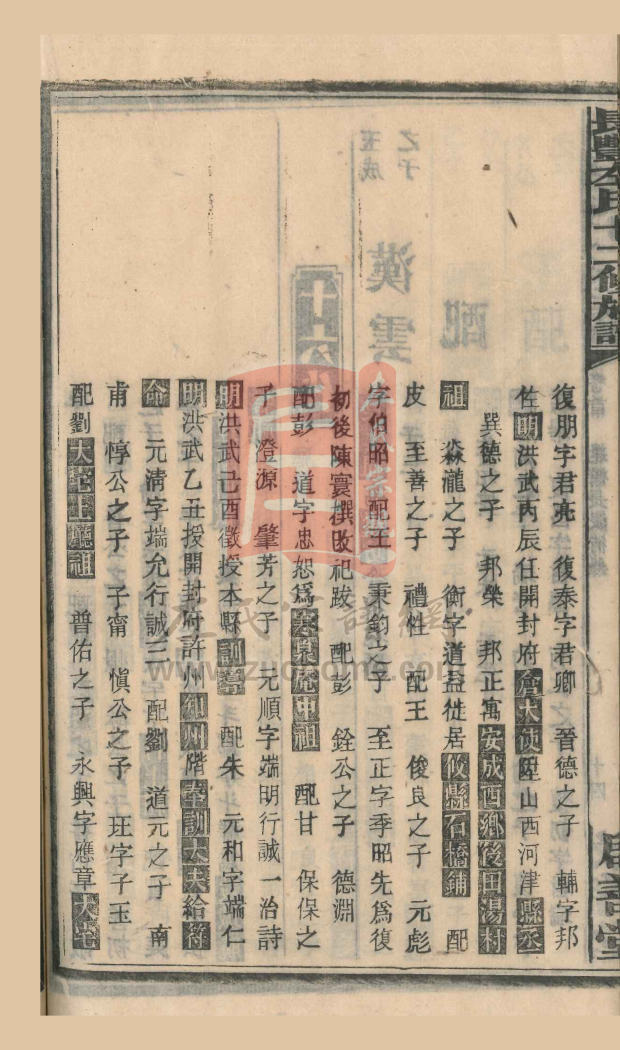 長豐左氏十二修族譜
復朋字君亮 復泰字君卿 晉德之子 輔字邦
性明洪武丙辰任開封府倉大使陞山西河津縣丞
巽德之子 邦榮 邦正寓安成西鄉後田湯村
祖 淼瀧之子 衡字道益徙居攸縣石橋鋪 配
皮 至善之子 禮性 配王 俊良之子 元彪
字伯昭 配王 秉鈞之子 至正字季昭先爲復
初後陳寔撰 祀跋 配彭 銓公之子 德淵
配彭 道字忠恕爲 菴中祖 配甘 保保之
子 澄源 肇芳之子 元順字端明行誠一治詩
明洪武己酉徵授本縣訓導 配朱 元和字端仁
明洪武乙丑授開封府許州知州階奉訓大夫給符
命 元清字端允行誠三 配劉 道元之子 南
甫 惇公之子 子甯 愼公之子 珏字子玉
配劉大宅上廳祖 普佑之子 永興字應章大宅
左氏家譜網
www.zuojiapu.com